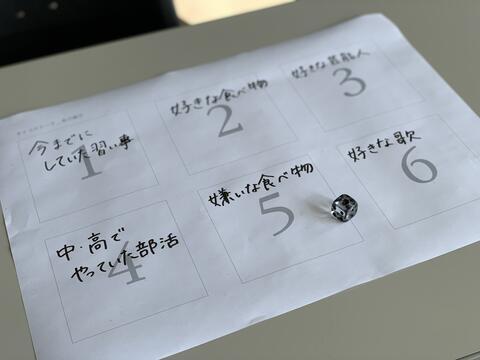 今までに
していた習い事
1
好きな食べ物
2
好きな芸能人
3
中・高で
やっていた部活
4
嫌いな食べ物
5
好きな歌
6